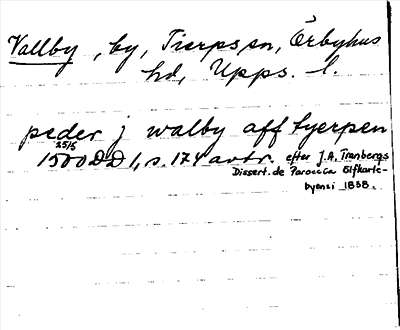 Vallby, by, Tierps sn, Örbyhus
hd, Upps. l.
peder j walby aff tyerpen
25/5
1500 DD 1, s. 174 avtr. efter J.A. Tranbergs
Dissert. de Paroecia Elfkarle-
byensi 1838.